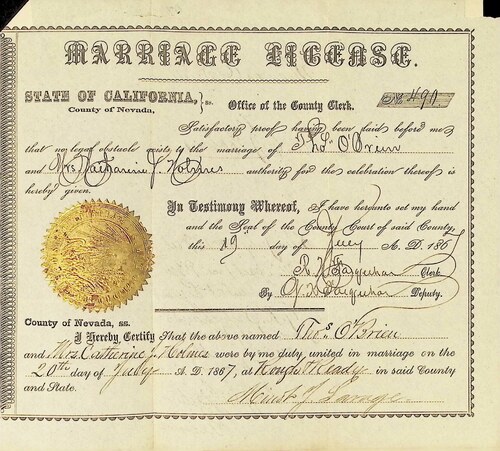 MARRIAGE LICENSE.
STATE OF CALIFORNIA, } ss. Office of the County Clerk. No 490
County of Nevada,
Satisfactory proof having been laid before me
that no legal obstacle exists to the marriage of Thos. O'Brien
and Mrs. Catharine J. Holmes authority for the celebration thereof is
hereby given.
In Testimony Whereof, I have hereunto set my hand
and the Seal of the County Court of said County,
this 19 day of July A. D. 186
Farquhar Clerk
By Farquhar Deputy.
County of Nevada, ss.
I Hereby Certify That the above named Thos. O'Brien
and Mrs. Catherine J. Holmes were by me duly united in marriage on the
20th day of July A. D. 1867, at Rough & Ready in said County
and State.